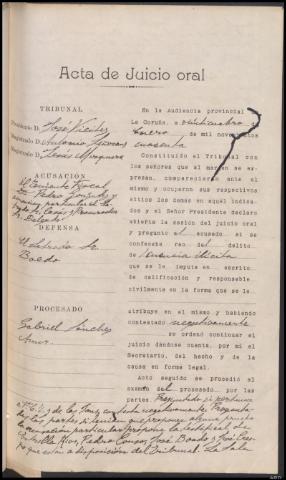 Acta de Juicio oral
TRIBUNAL
Presidente D. José Vieitez
Magistrado D. Antonio
Magistrado D.
ACUSACIÓN
El Teniente Fiscal
Sr. Pedro González y
particular el Le-
y Procurador
Sr.
DEFENSA
El Letrado Sr.
Boedo
PROCESADO
Gabriel Sanchez
Amor.
En la Audiencia provincial
La Coruña, a veinticuatro de
Enero de mil novecientos
cuarenta
Constituido el Tribunal con
los señores que al margen se ex-
presan, comparecieron ante el
mismo y ocuparon sus respectivos
sitios los demas en aquel indica-
dos y el Señor Presidente declaro
abierta la sesión del juicio oral
y preguntó al acusado si se
confesaba reo del delito
de tenencia ilicita
que se le imputa en escrito
de calificación y responsable
civilmente en la forma que se le
atribuye en el mismo y habiendo
contestado negativamente
se ordenó continuar el
juicio dándose cuenta, por mi el
Secretario, del hecho y de la
causa en forme legal.
Acto seguido se procedió al
examen del procesado por las
partes. Preguntado si pertenece
a F.E. y de las Jons contesta negativamente. Pregunta-
das las partes si tenian que proponer alguna prueba
la acusación particular propone la testifical de
José Boado y José
que están a disposición del Tribunal. La Sala